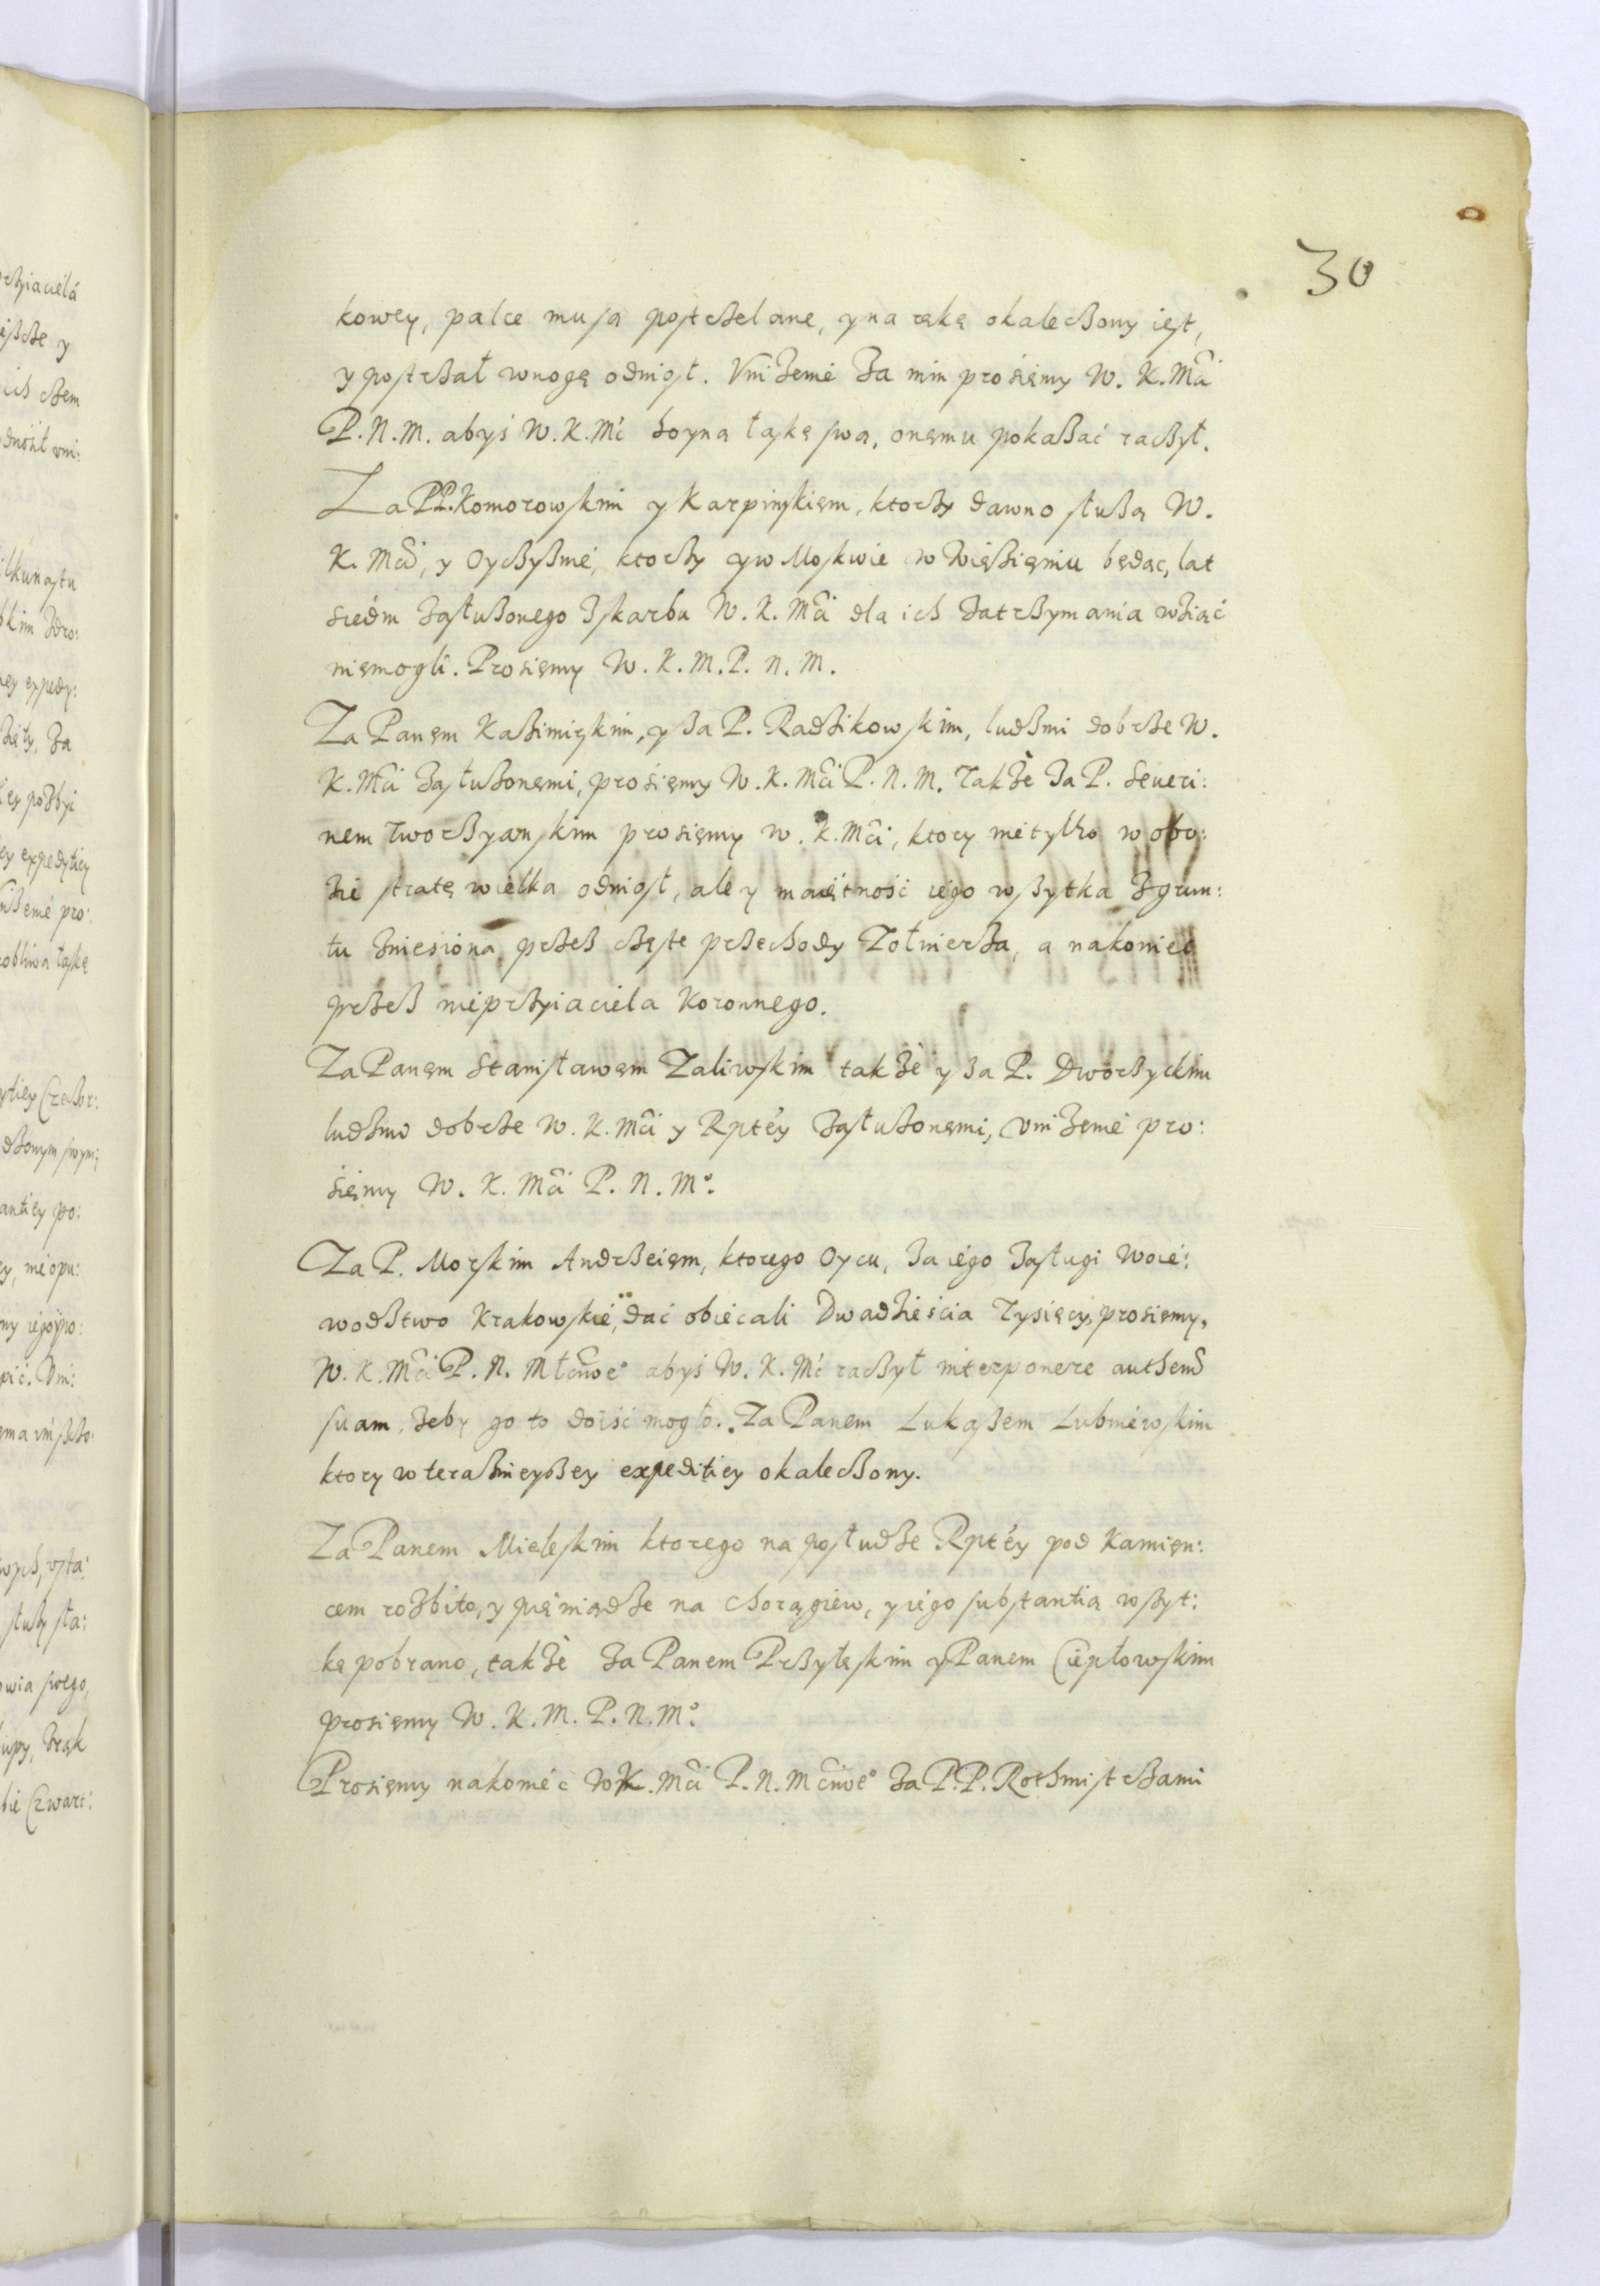 30
kowey, palce mu są postrzelane, y na rękę okaleczony iest,
y postrzał w nogę odniosł. Vniżenie za nim prosięmy W. K. Mći
P. N. M. abyś W. K. Mć hoyną łaskę swą, onęmu pokazać raczył.
Za PP. Komorowskim y Karpinskięm, ktorzy dawno służą W.
K. Mći, y Oyczyznie, ktorzy y w Moskwie w więzięniu będąc, lat
siedm zasłużonego z skarbu W. K. Mći dla ich zatrzymania wziąć
nięmogli. Prosięmy W. K. M. P. N. M.
Za Panęm Kazimirskim, y za P. Radzikowskim, ludzmi dobrze W.
K. Mći zasłużonęmi, prosięmy W. K. Mći P. N. M. Także za P. Seueri:
nem Tworzyanskim prosięmy W. K. Mći, ktory nie tylko w obo:
zie stratę wielka odniosł, ale y maiętność iego wszytka z grun:
tu zniesiona przez częste przechody Zołnierza, a nakoniec
przez nieprzyiaciela Koronnego.
Za Panęm Stanisławęm Zaliwskim także y za P. Dworzyckim
ludzmi dobrze W. K. Mći y Rptéy zasłużonęmi, vniżęnie pro:
sięmy W. K. Mći P. N. Mº.
Za P. Morskim Andrzeięm, ktorego Oycu, za iego zasługi Woie:
wodztwo Krakowskie, dać obiecali Dwadzieścia Tysięcy, prosięmy,
W. K. Mći P. N. Młćiweº abyś W. K. Mć raczył interponere authem
suam, żeby go to doiść mogło. Za Panem Lukaszem Lubniewskim
ktory w terazniieyszey expeditiey okaleczony.
Za Panem Mieleskim ktorego na posłudze Rptéy pod Kamięn:
cem rozbito, y pięniądze na chorągiew, y iego substantią wszyt:
kę pobrano, także za Panem Przyłęskim y Panem Ciepłowskim
prosięmy W. K. M. P. N. Mº.
Prosięmy nakoniec W K. Mći P. N. Mćiweº za P.P. Rothmistrzami